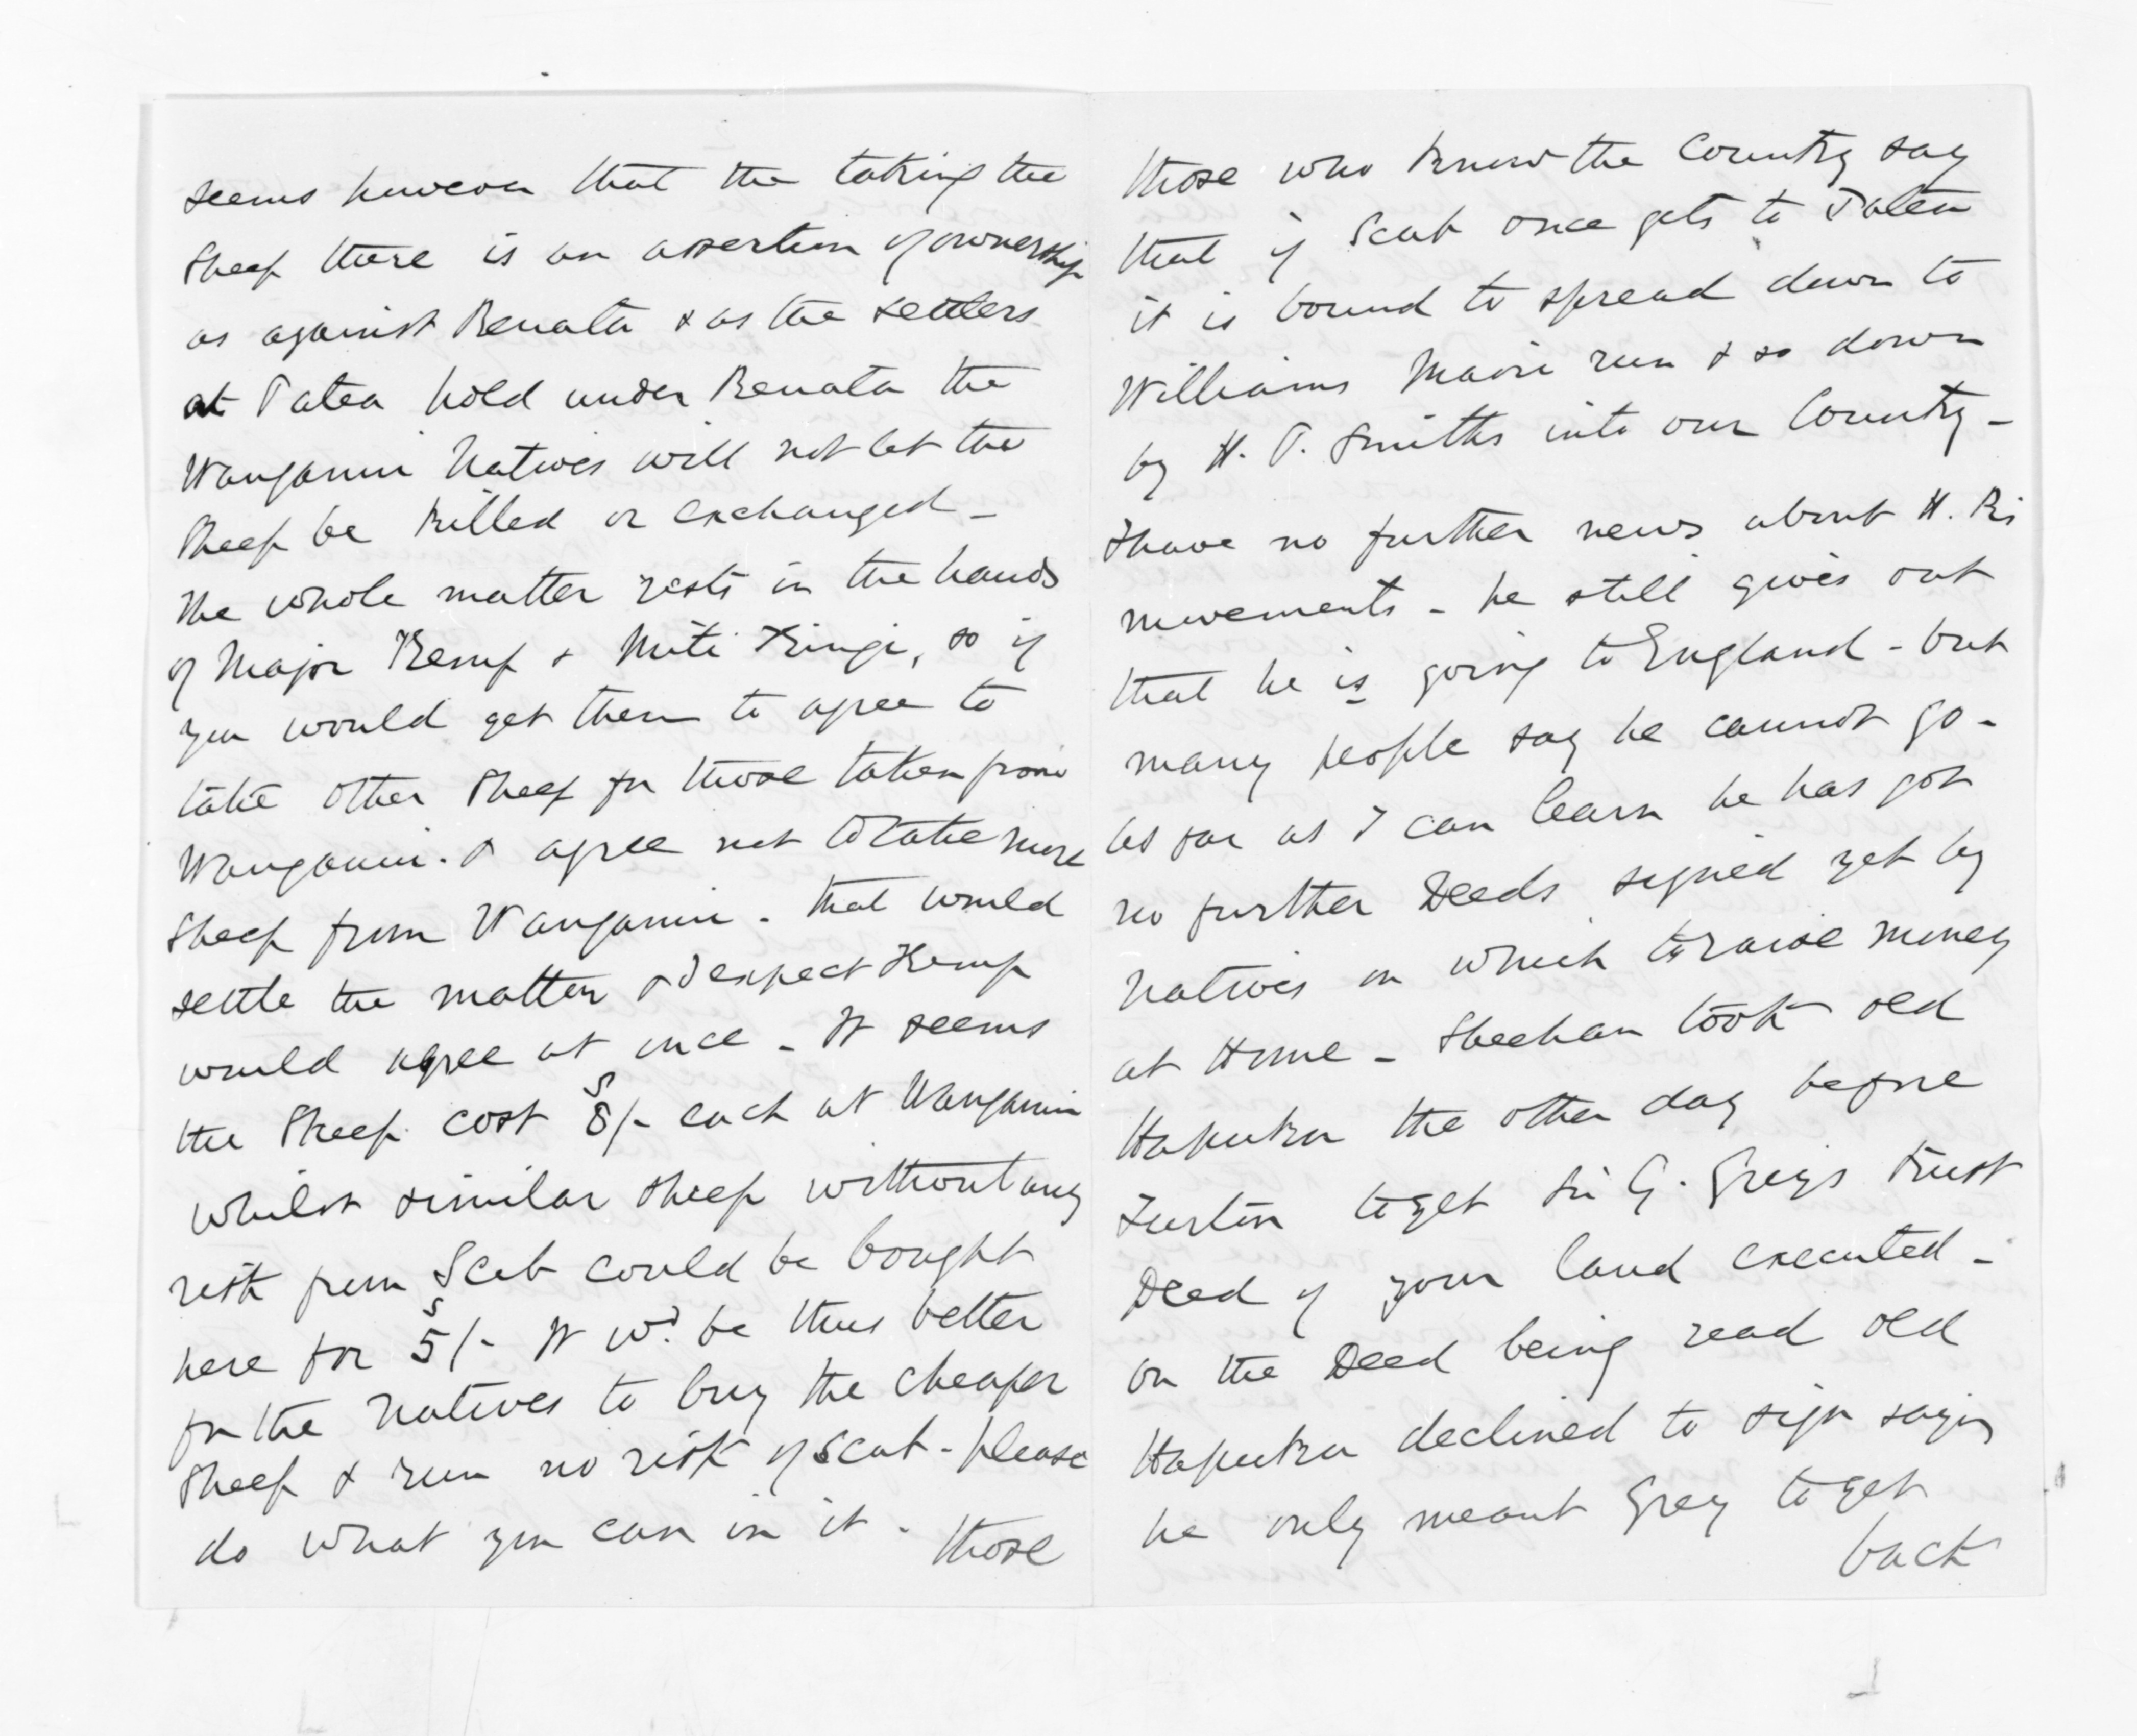 seems however that the taking the
Sheep there is an assertion of ownership
as against Renata & as the settlers
at Patea hold under Renata the
Wanganui Natives will not let the
Sheep be killed or exchanged -
The whole matter rests in the hands
of Major Kemp & Mete Kingi, so if
you would get them to agree to
take other Sheep for those taken from
Wanganui. & agree not to take more
Sheep from Wanganui - that would
settle the matter & I expect Kemp
would agree at once - It seems
the Sheep cost 8s/- each at Wanganui
whilst similar sheep without any
risk from Scab could be bought
here for 5s/- It wd. be thus better
for the natives to buy the cheaper
Sheep & run no risk of Scab - please
do what you can in it - those
those who know the Country say
that if Scab once gets to Patea
it is bound to spread down to
Williams Maori run & so down
by H. P. Smiths into our Country -
I have no further news about H. Rs
movements - he still gives out
that he is going to England - but
many people say he cannot go -
as far as I can learn he has got
no further Deeds signed yet by
Natives on which to raise money
at Home - Sheehan took old
Hapuku the other day before
Turton to get Sir G. Greys Trust
Deed of your land executed -
on the Deed being read old
Hapuku declined to sign saying
he only meant Grey to get
back